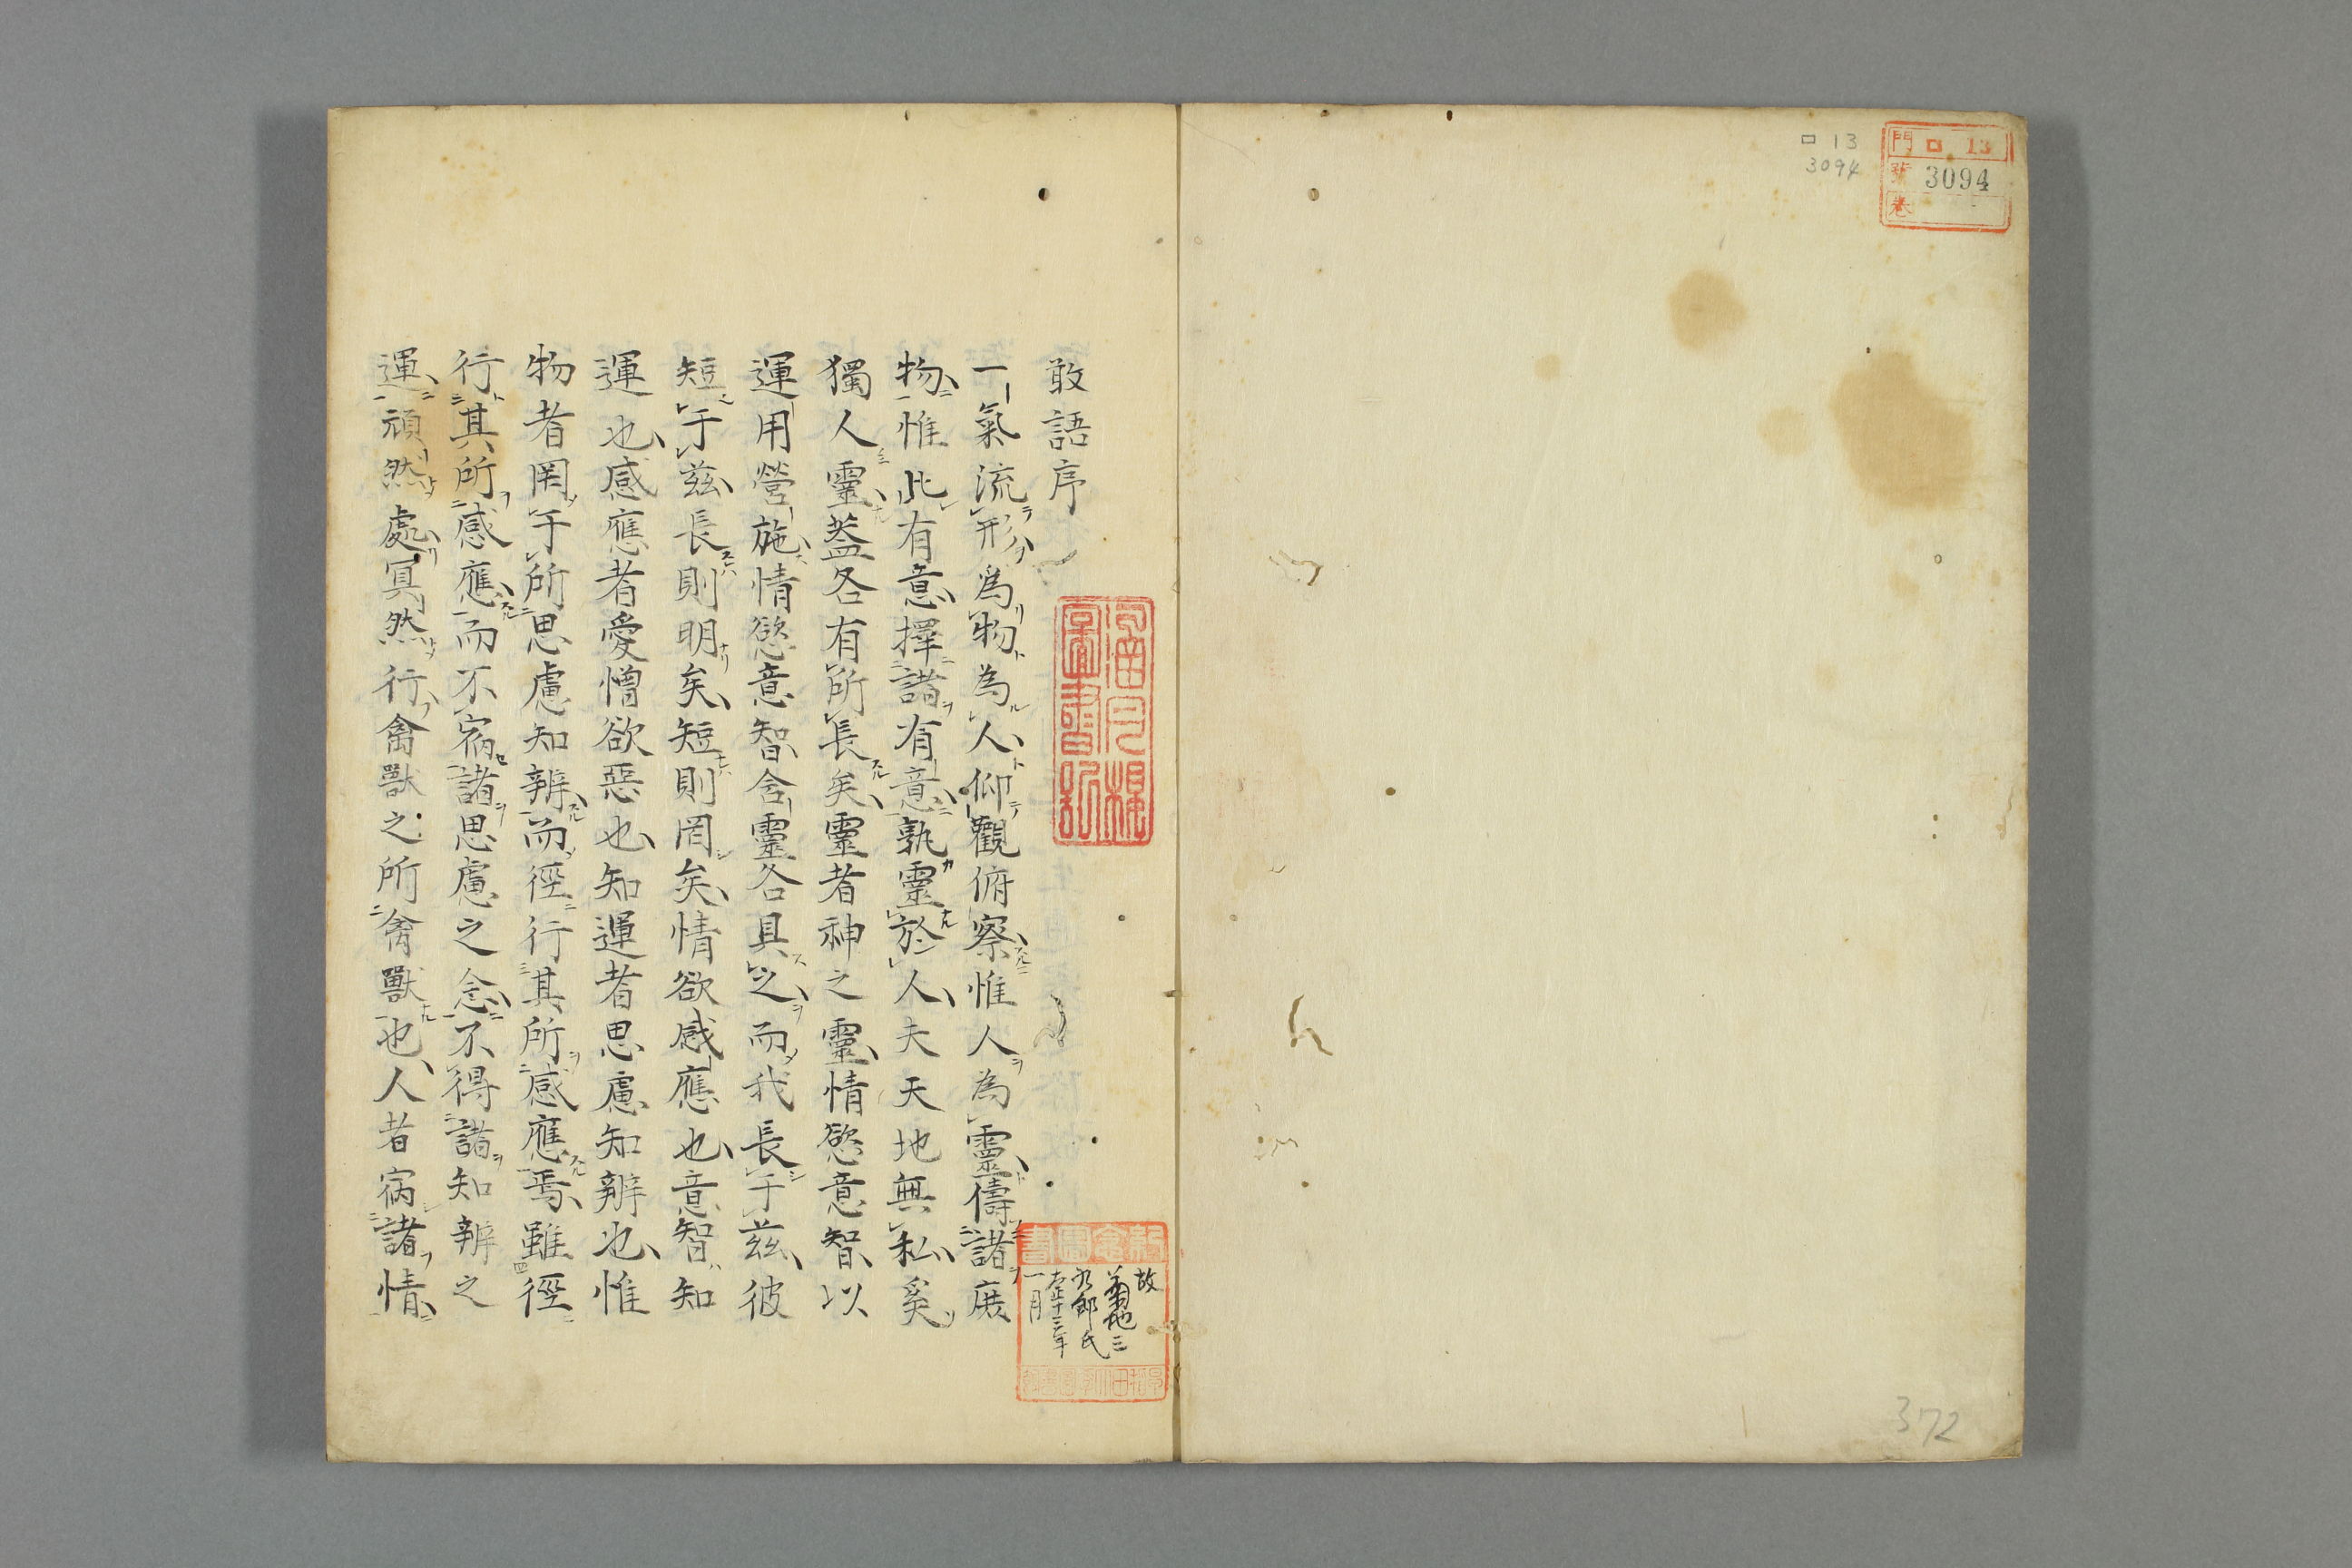 門 ロ 13
號 3094
卷
ロ 13
3094
敢語序
一氣流形爲物為人仰觀俯察惟人為靈儔諸庶
物惟此有意擇諸有意孰靈於人夫天地無私奚
獨人靈葢各有所長矣靈者神之靈情慾意智以
運用營施情慾意智含靈各具之而我長于茲彼
短于茲長則明矣短則罔矣情欲感應也意智知
運也感應者愛憎欲惡也知運者思慮知辨也惟
物者罔于所思慮知辨而徑行其所感應焉雖徑
行其所感應而不病諸思慮之念不得諸知辨之
運頑然處冥然行禽獸之所禽獸也人者病諸情
故
菊地三
九郎氏
大正十三年
一月
372